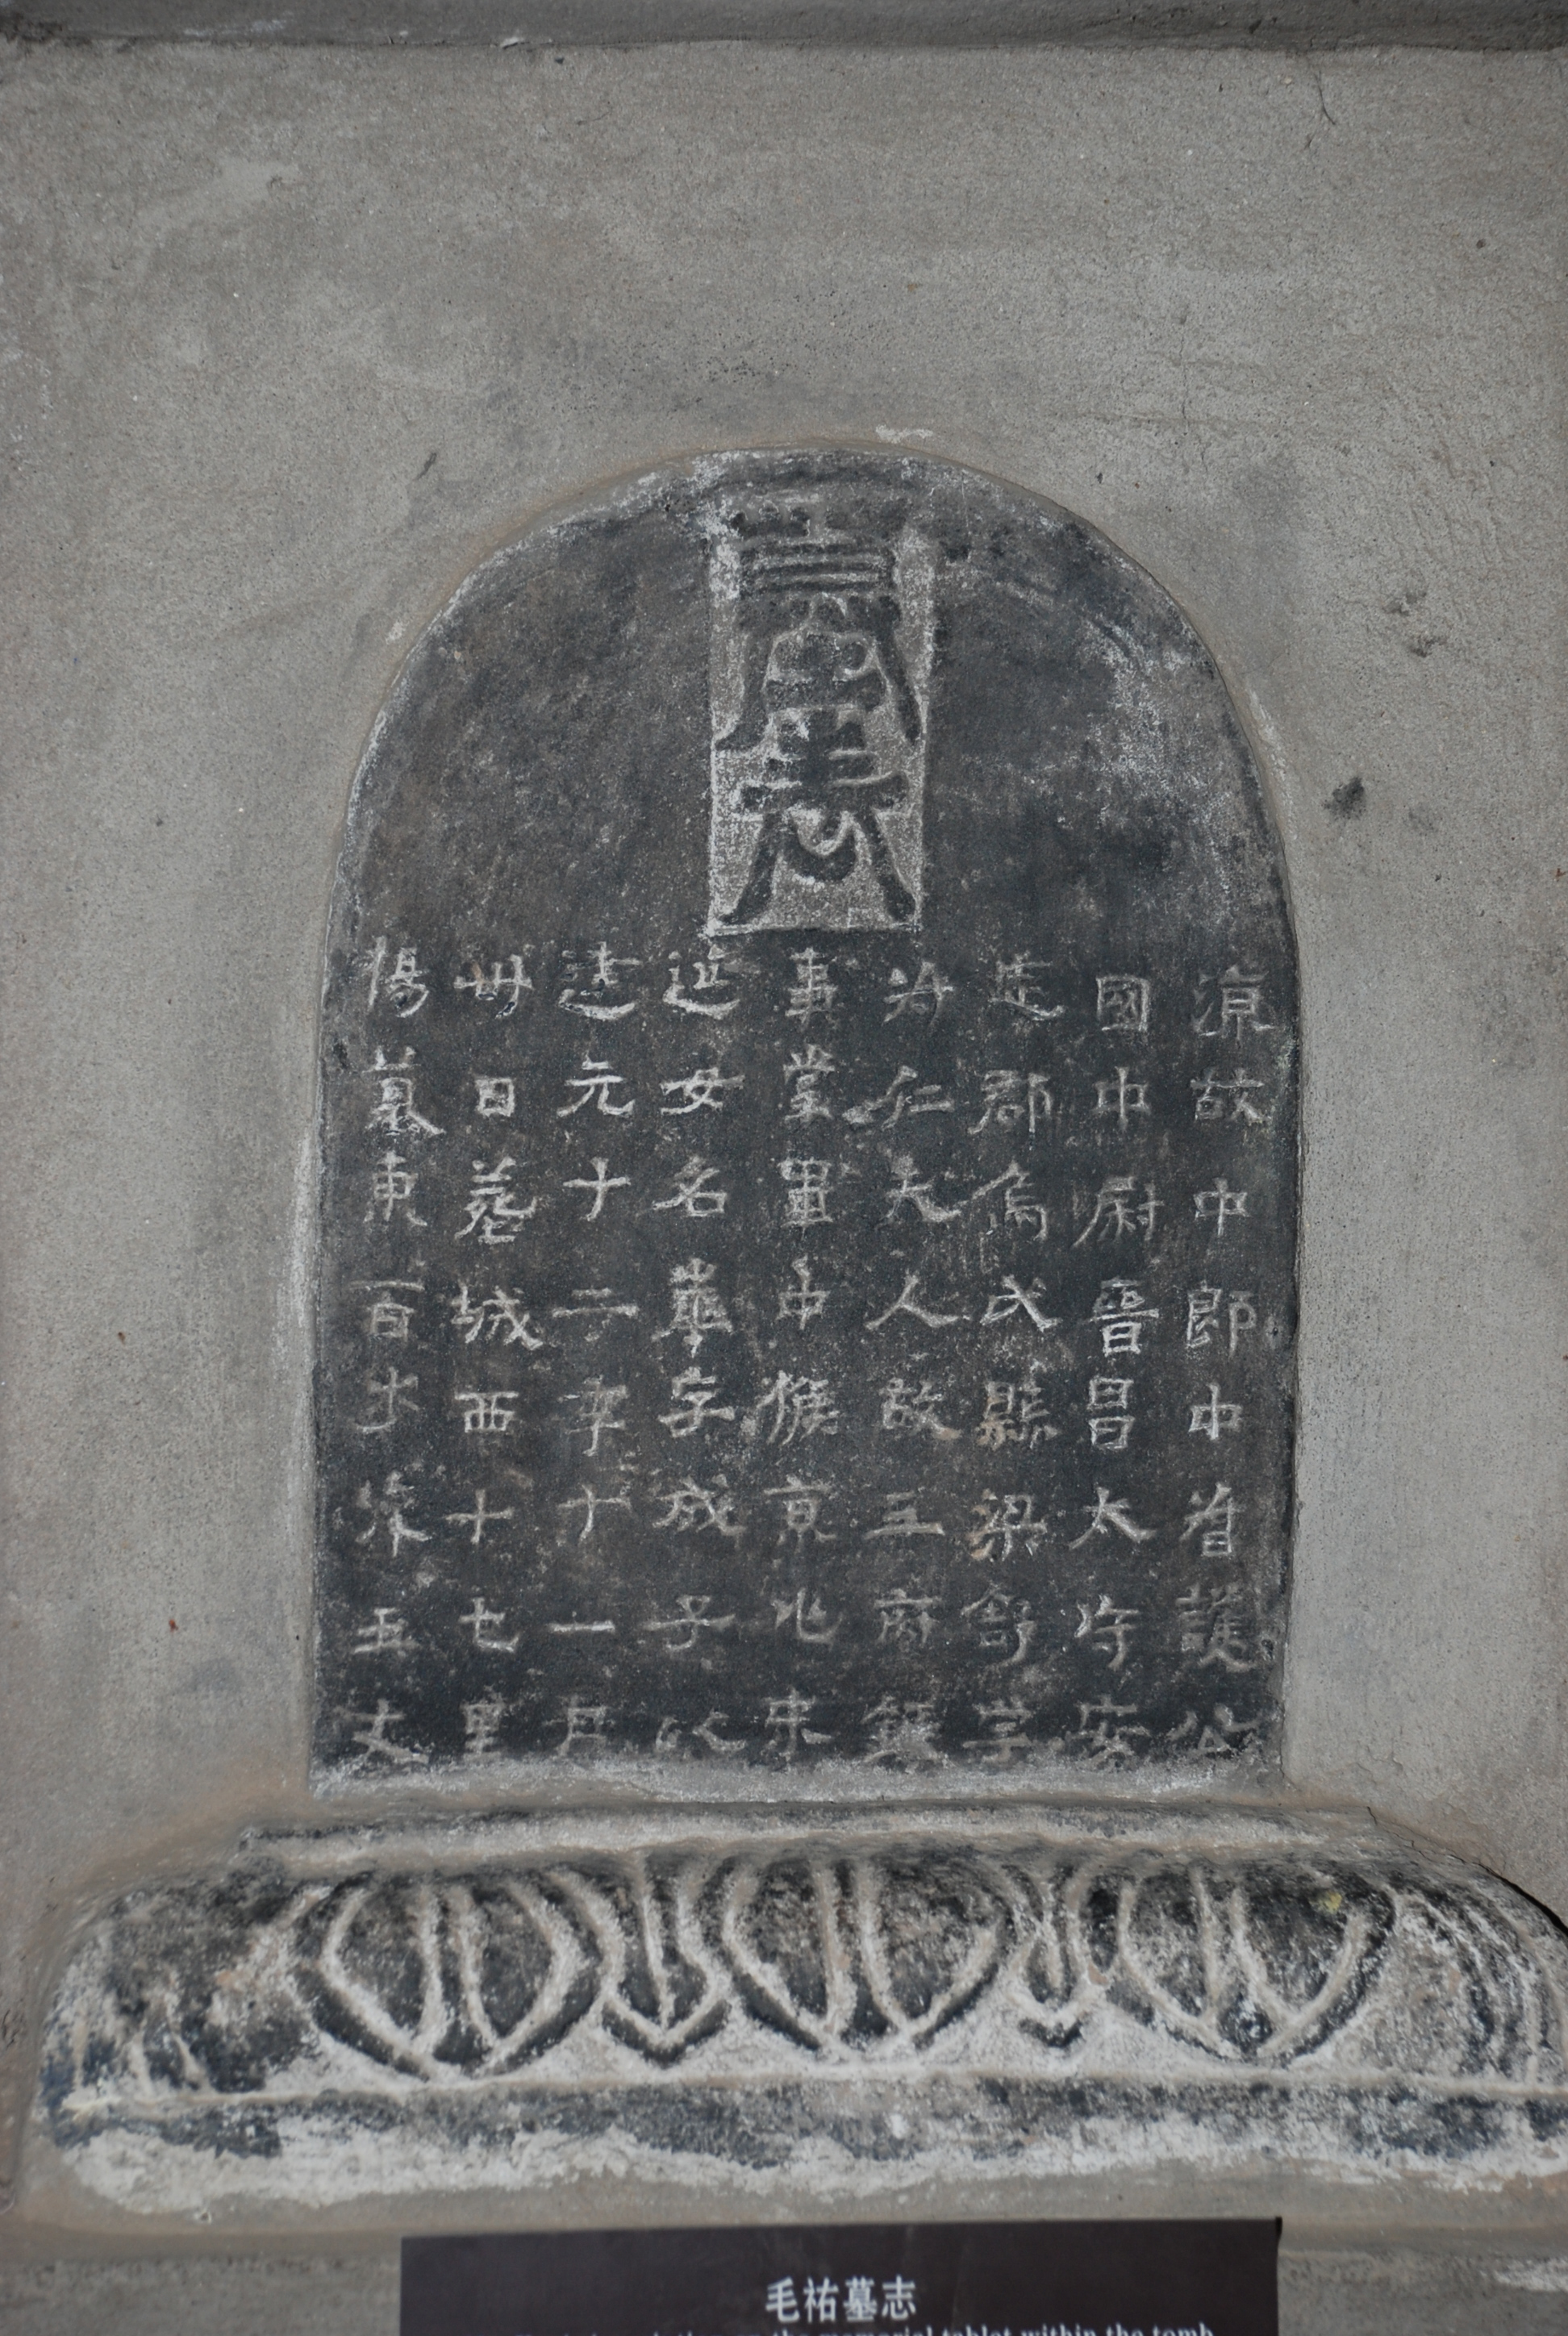 墓表
涼故中郎中督護公
國中尉晉昌太守安
定郡烏氏縣梁舒字
叔仁夫人故三府錄
事掌軍中候京兆宋
延女名華字成子以
建元十二年十一月
卅日葬城西十七里
楊墓東百步深五丈
毛祐墓志
on the memorial tablet within the tomb